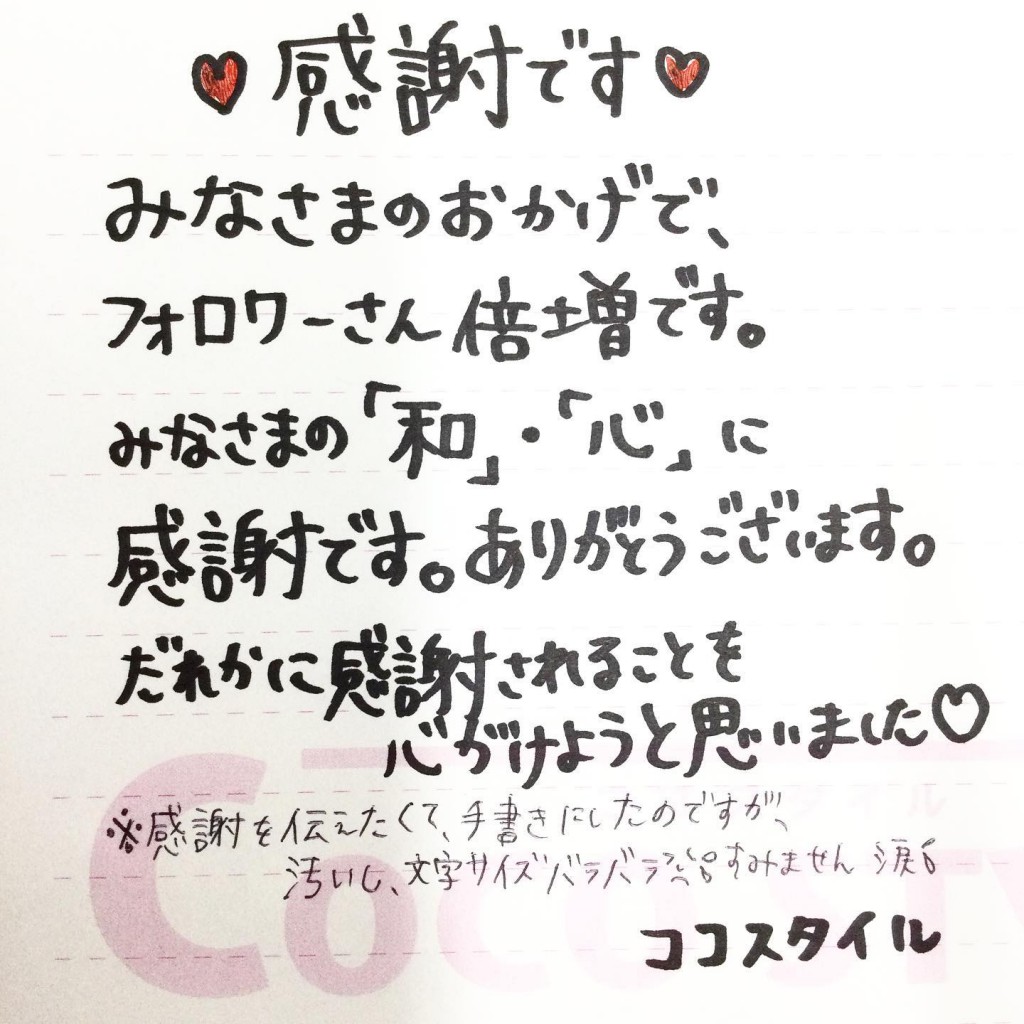 ♥感謝です♥
みなさまのおかげで、
フォロワーさん倍増です。
みなさまの「和」・「心」に
感謝です。ありがとうございます。
だれかに感謝されることを
心がけようと思いました♡
※感謝を伝えたくて、手書きにしたのですが、
汚いし、文字サイズバラバラ すみません 涙
ココスタイル